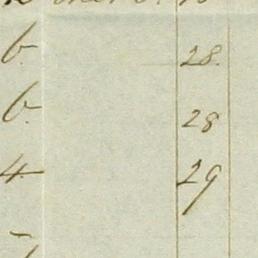 6 28.
6 28
4 29